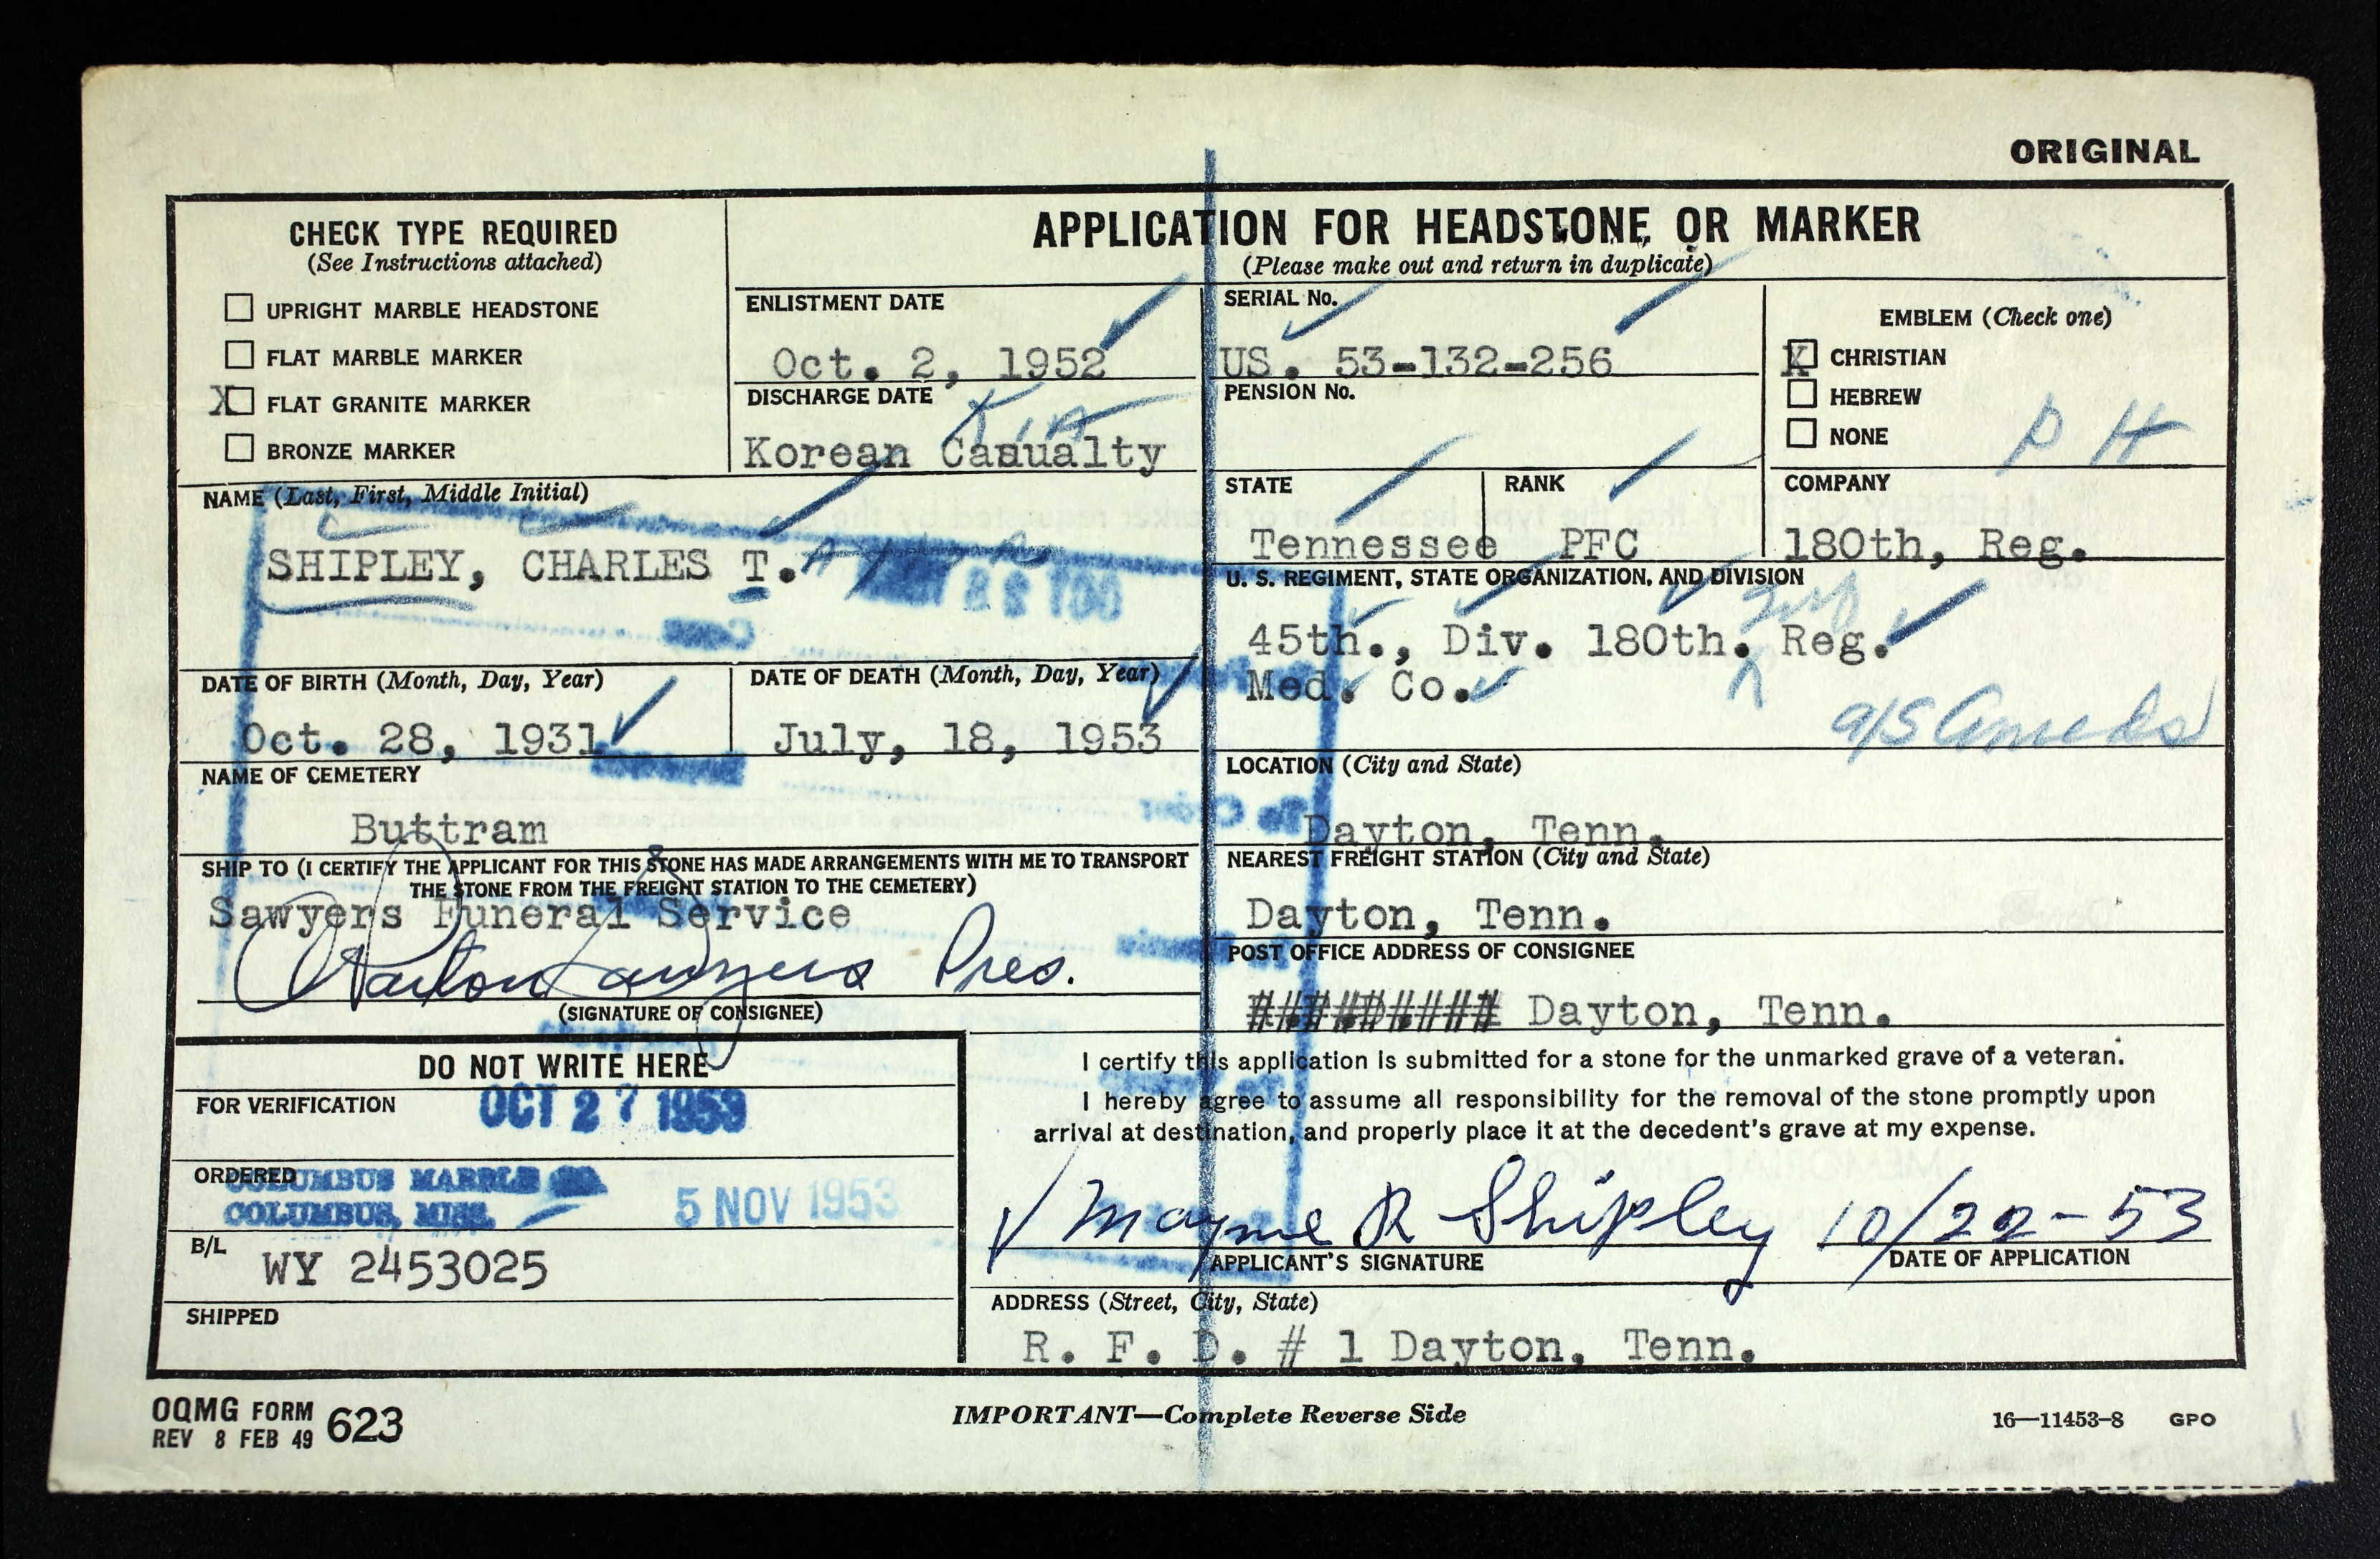 ORIGINAL
CHECK TYPE REQUIRED
(See Instructions attached)
UPRIGHT MARBLE HEADSTONE
FLAT MARBLE MARKER
X FLAT GRANITE MARKER
BRONZE MARKER
APPLICATION FOR HEADSTONE OR MARKER
(Please make out and return in duplicate)
ENLISTMENT DATE
Oct. 2, 1952
SERIAL No.
US. 53-132-256
EMBLEM (Check one)
X CHRISTIAN
HEBREW
NONE
P H
DISCHARGE DATE
K.I.A
Korean Casualty
PENSION No.
NAME (Last, First, Middle Initial)
SHIPLEY, CHARLES T.
STATE
Tennessee
RANK
PFC
COMPANY
180th, Reg.
U. S. REGIMENT, STATE ORGANIZATION, AND DIVISION
45th., Div. 180th. Reg.
Med. Co.
DATE OF BIRTH (Month, Day, Year)
Oct. 28, 1931
DATE OF DEATH (Month, Day, Year)
July, 18, 1953
NAME OF CEMETERY
Buttram
LOCATION (City and State)
Dayton, Tenn.
SHIP TO (I CERTIFY THE APPLICANT FOR THIS STONE HAS MADE ARRANGEMENTS WITH ME TO TRANSPORT
THE STONE FROM THE FREIGHT STATION TO THE CEMETERY)
Sawyers Funeral Service
Pres.
(SIGNATURE OF CONSIGNEE)
NEAREST FREIGHT STATION (City and State)
Dayton, Tenn.
POST OFFICE ADDRESS OF CONSIGNEE
Dayton, Tenn.
DO NOT WRITE HERE
FOR VERIFICATION
OCT 27 1953
ORDERED
COLUMBUS MARBLE CO.
COLUMBUS, MISS.
5 NOV 1953
B/L
WY 2453025
SHIPPED
I certify this application is submitted for a stone for the unmarked grave of a veteran.
I hereby agree to assume all responsibility for the removal of the stone promptly upon
arrival at destination, and properly place it at the decedent's grave at my expense.
Mayme R Shipley 10/22-53
APPLICANT'S SIGNATURE
DATE OF APPLICATION
ADDRESS (Street, City, State)
R. F. D. # 1 Dayton, Tenn.
OQMG FORM 623
REV 8 FEB 49
IMPORTANT—Complete Reverse Side
16—11453-8 GPO